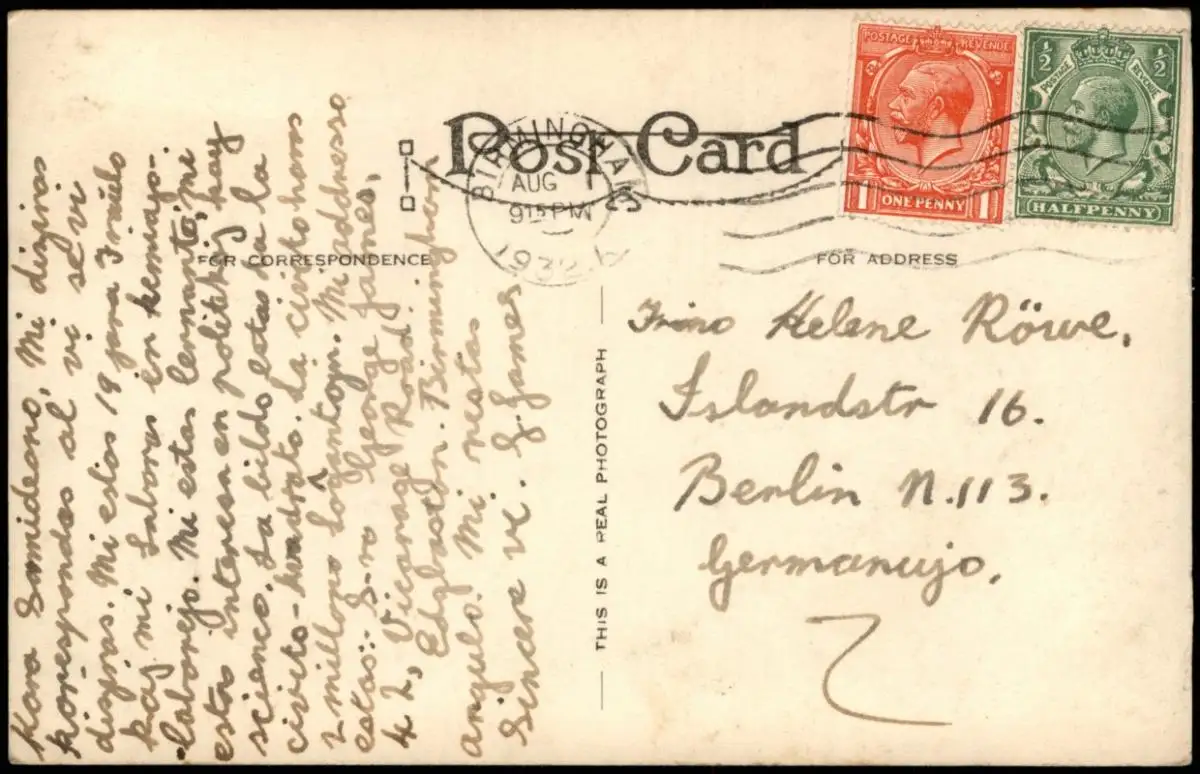 POST CARD
BIRMINGHAM
AUG
915PM
1932
POSTAGE REVENUE
1 ONE PENNY 1
½ ½
POSTAGE REVENUE
HALFPENNY
FOR CORRESPONDENCE
FOR ADDRESS
Kara Samideano, Mi diziras
korespondes al vi se vi
dizjras. Mi estas 19 jara Fraŭlo
kaj mi laboras en kemiajo-
laborejo. Mi estas lernanto, mi
estas interesa en politikij, kaj
scienco. La bildo estas la
civito-kvadrato. La civito havas
2 miliono loĝantojn. Mi addresso
estas: S-ro George James,
42, Vicarage Road.
Edgbaston. Birmingham,
Angulo. Mi restas
Sincere vi. G. James
THIS IS A REAL PHOTOGRAPH
Frino Helene Röwe,
Islandstr 16.
Berlin N.113.
Germanujo.